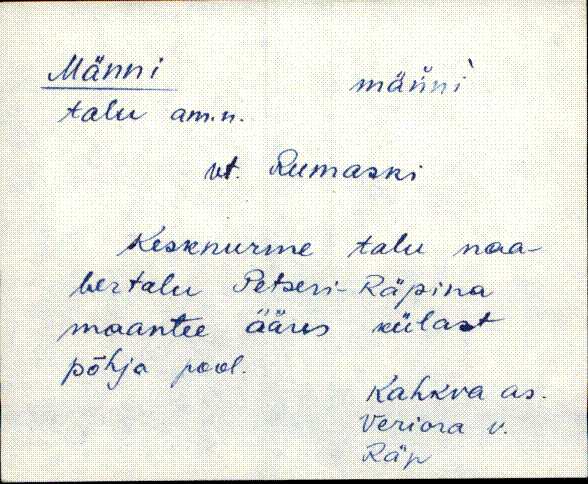 Männi männi
talu am.n.
vt. Rumaski
Kesknurme talu naa-
bertalu Petseri-Räpina
maantee ääres külast
põhja pool.
Kahkva as.
Veriora v.
Räp